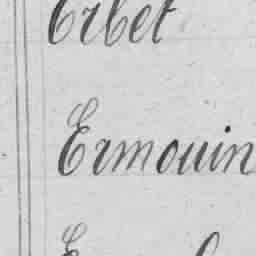 Erbet
Ermouin